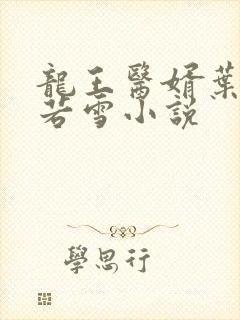 龍王醫婿葉
若雪小說
學思行